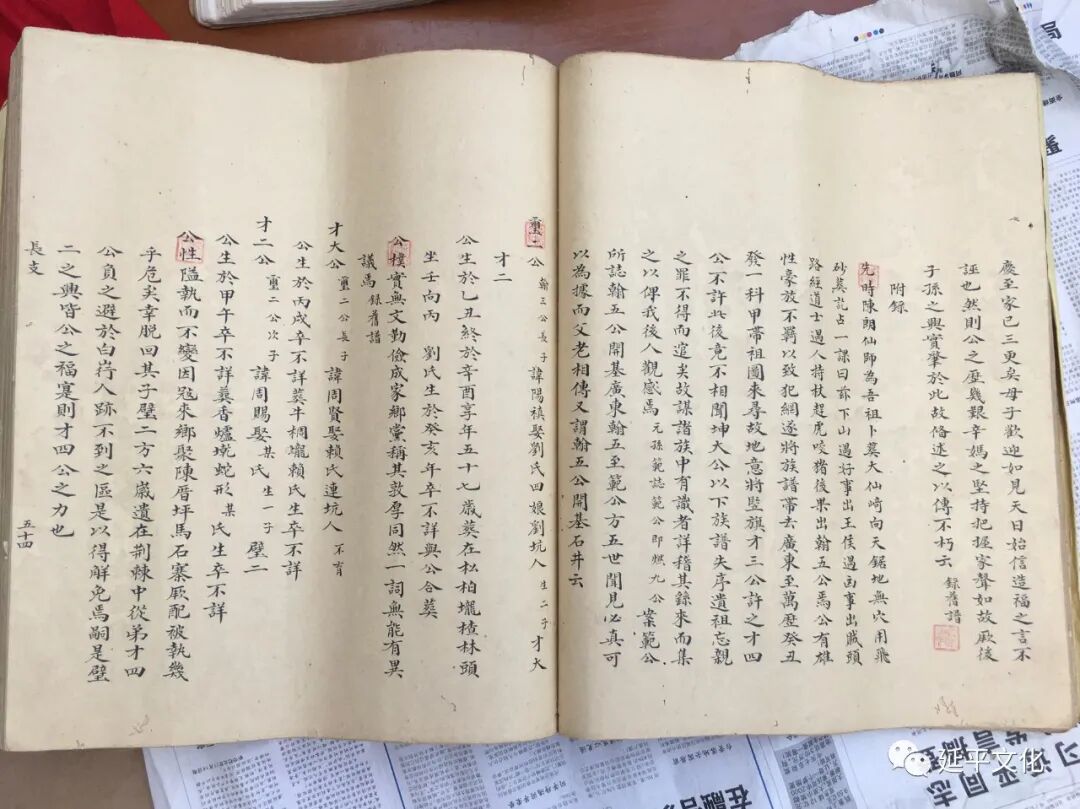 慶至家已三更矣母子歡迎如見天日始信造福之言不
誣也然則公之歷幾艱辛媽之堅持把握家聲如故厥後
子孫之興實肇於此故俻述之以傳不朽云 録舊譜
附录
先時陳朗仙師為吾祖卜葬大仙崎向天鋸地無穴用飛
砂葬訖占一課曰前下山遇好事出王侯遇凶事出賊頭
路經道士過人持杖趕虎咬猪後果出翰五公焉公有雄
性豪放不羈以致犯網遂將族譜帶去廣東至萬歷癸丑
發一科甲帶祖圖來尋故地意將竪旗才三公許之才四
公不許此後竟不相聞坤大公以下族譜失序遺祖忘親
之罪不得而逭矣故謀諸族中有識者詳稽其録來而集
之以俾我後人觀感焉 元孫範誌範公即燃九公 案範公
所誌翰五公開基廣東翰五至範公方五世聞見必真可
以為據而父老相傳又謂翰五公開基石井云
璽二公 翰三公長子 諱陽禎娶劉氏四娘劉坑人 生二子 才大
才二
公生於乙丑終於辛酉享年五十七歲葬在松柏壠楂林頭
坐壬向丙 劉氏生於癸亥年卒不詳與公合葬
公樸實無文勤儉成家鄉黨稱其敦厚同然一詞無能有異
議焉 録舊譜
才大公 璽二公長子 諱周賢娶賴氏連坑人 不育
公生於丙戌卒不詳葬牛欄壠賴氏生卒不詳
才二公 璽二公次子 諱周賜娶某氏 生一子 壁二
公生於甲午卒不詳葬香爐坑蛇形某氏生卒不詳
公性隘執而不變因寇來鄉聚陳厝坪馬石寨厥配被執幾
乎危矣幸脱回其子壁二方六歲遺在荆棘中從弟才四
公負之避於白㟁人跡不到之區是以得解免焉嗣是壁
二之興皆公之福寔則才四公之力也
長支
五十四
延平文化